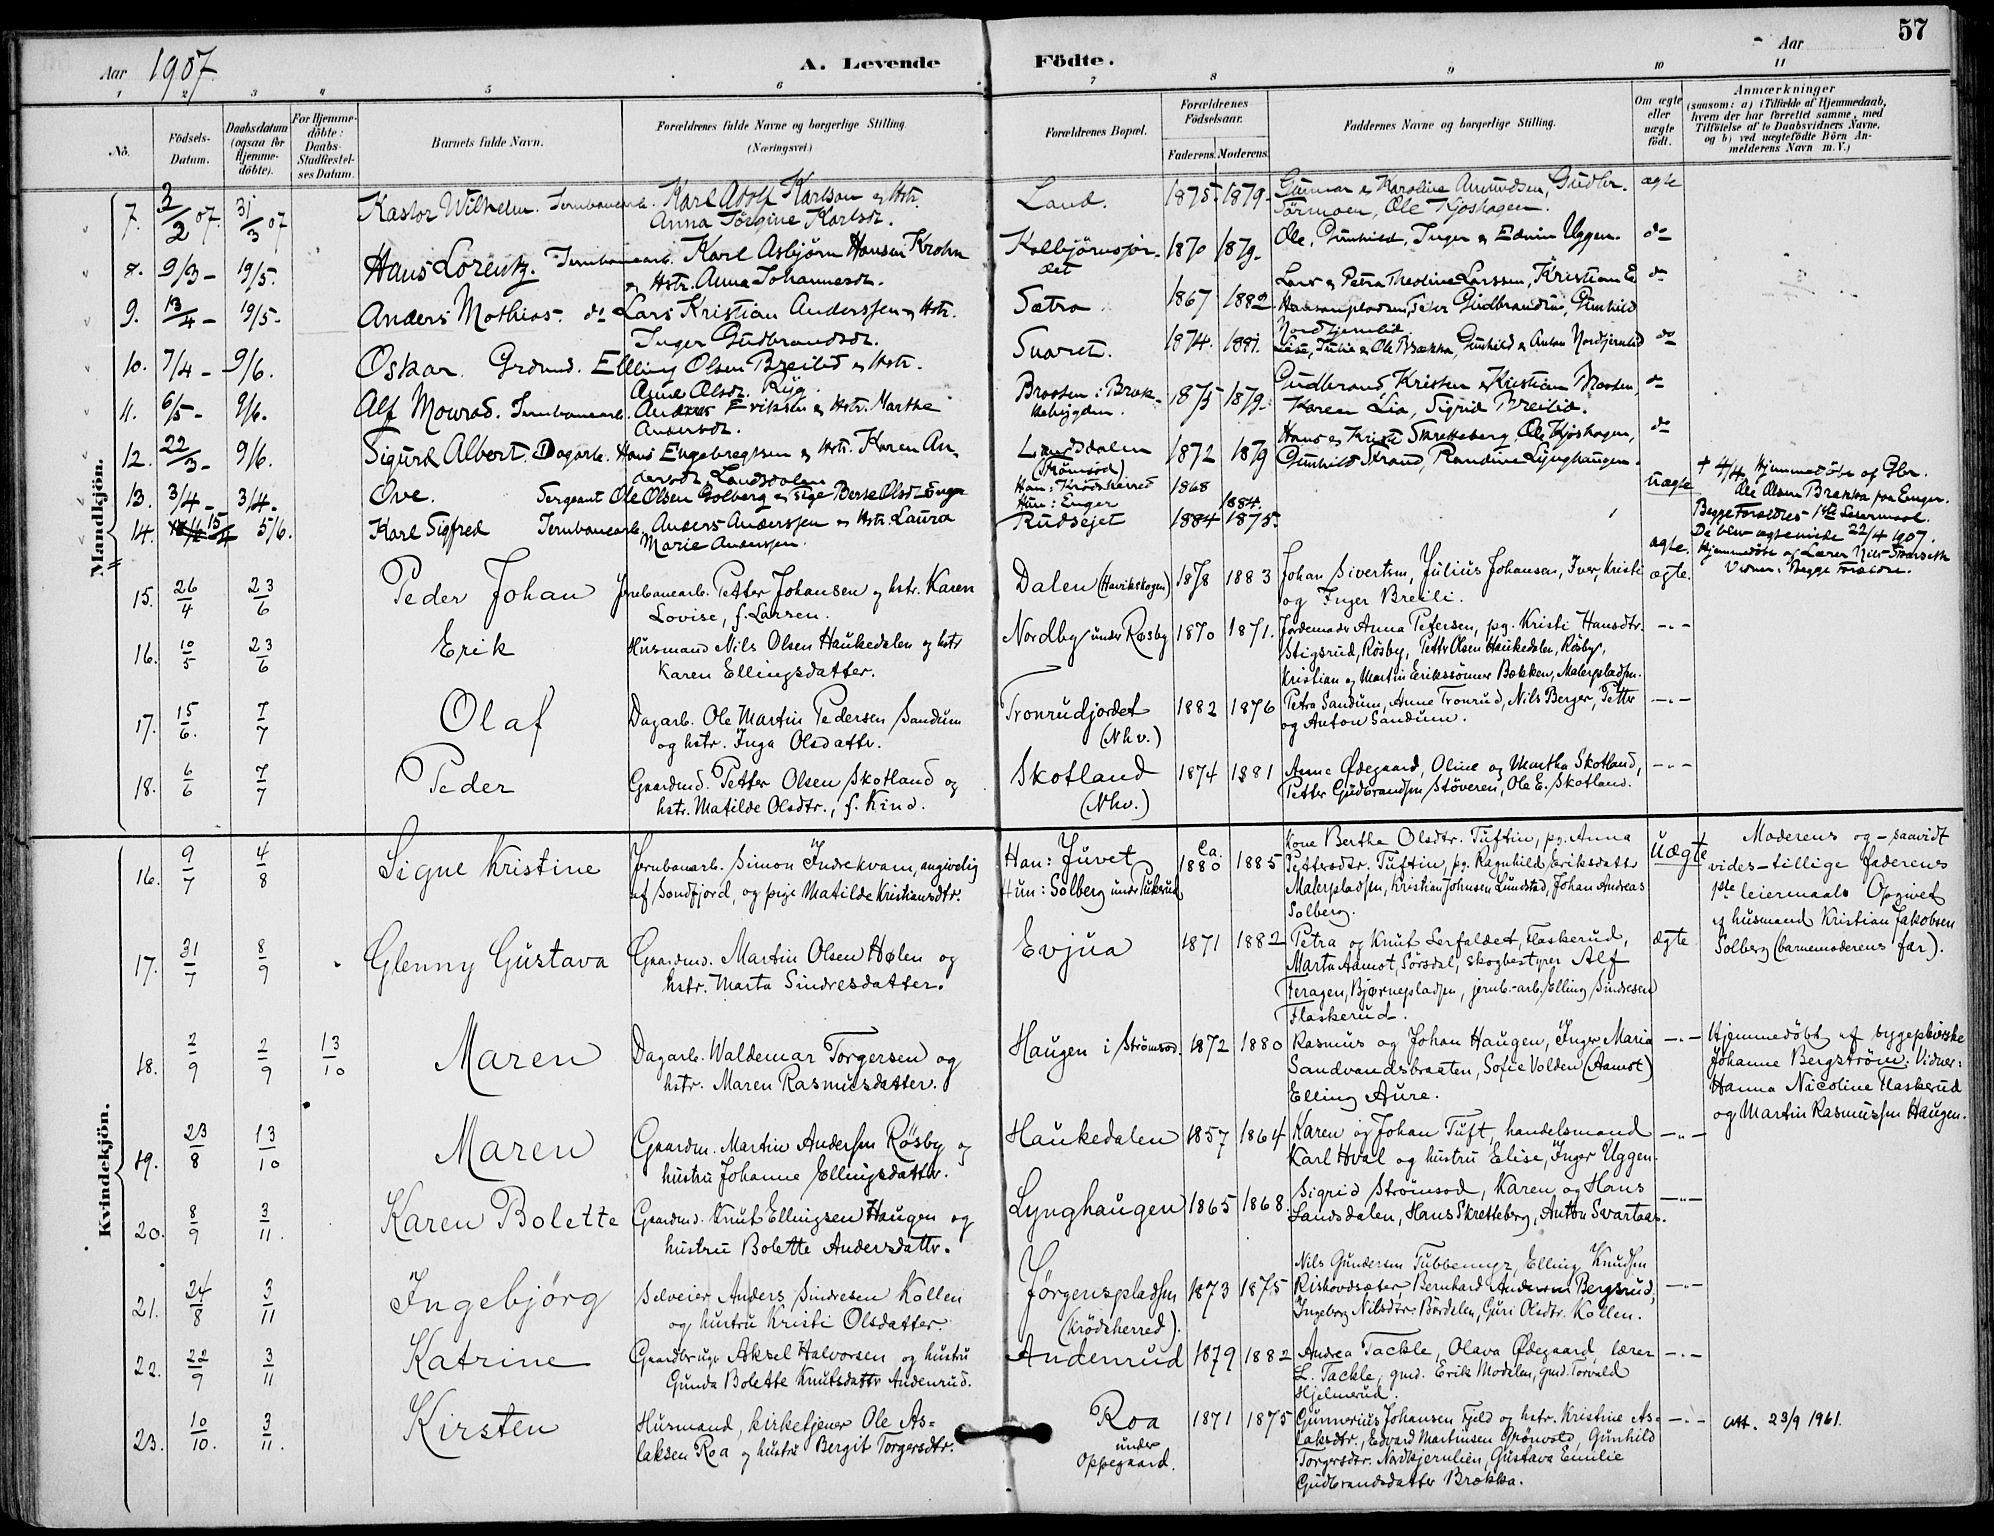 57
Aar 1907. A. Levende Födte. Aar
1 2 3 4 5 6 7 8 9 10 11
No. Födsels-Datum. Daabsdatum (ogsaa for Hjemme-döbte). For Hjemme-döbte: Daabs-Stadfæstel-ses Datum. Barnets fulde Navn. Forældrenes fulde Navne og borgerlige Stilling. (Næringsvei.) Forældrenes Bopæl. Forældrenes Födselsaar. Faderens. Moderens. Faddernes Navne og borgerlige Stilling. Om ægte eller uægte födt. Anmærkninger (saasom: a) i Tilfælde af Hjemmedaab, hvem der har forrettet samme, med Tilföielse af to Daabsvidners Navne, og b) ved uægtefödte Börn An-melderens Navn m. V.)
Mandkjön.
7. 3/2 07. 31/3 07 Kastor Wilhelm. Jernbanearb. Karl Adolf Karlsen og Hstr. Land. 1875 - 1879 - Gunnar & Karoline Amundsen, Gudbr. ægte
Anna Torgine Karlsdt. Tørmoen, Ole Kjoshagen.
8. 9/3 - 19/5. Hans Lorentz. Jernbanearb. Karl Asbjørn Hansen Krohn Kolbjørnsjor- 1870 1879 - Ole, Gunhild, Inger & Edvin Uggen. do
og Hstr. Anna Johannesdt. det
9. 13/4 - 19/5 - Anders Mathias. do Lars Kristian Anderssen og Hstr. Sætra 1867 1882 Lars & Petra Theoline Larssen, Kristian E do
Inger Gudbrandsdt. Hansenpladsen, Peter Gudbrandsen, Gunhild
Nordtjernlid
10. 7/4 - 9/6. Oskar Grdmd. Elling Olsen Breilid og Hstr. Svaret. 1874. 1881. Lise, Julie & Ole Brækka, Gunhild & Anton Nordjernlid do
Anne Olsdt. Riig.
11. 6/5 - 9/6. Alf Monrad. Jernbanearb. Anders Eriksen og Hstr. Marthe Braaten i Bræk- 1875 1879 - Gudbrand, Kristen & Kristian Moen, do
Andersdt. kebygden. Karen Lia, Sigrid Breilid.
12. 22/3 - 9/6. Sigurd Albert. Dagarb. Hans Engebregtsen og Hstr. Karen An- Landsdalen 1872 1879 Hans & Kristi Skretteberg, Ole Kjoshagen, do
dersdt. Landsdalen (Strømsod) Gunhild Strand, Randine Lynghaugen.
13. 3/4 - 3/4 - Ove. Sergeant Ole Olsen Golberg og Pige Berte Olsdt Enger Han: Krødsherred 1868 uægte † 4/4 Hjemmedøbt af Gbr.
Hun: Enger 1884. Ole Olsen Brækka paa Enger.
14. 15/4 5/6. Karl Sigfred Jernbanearb. Anders Anderssen og Hstr. Laura Rudsejet 1884 1875. Begge Forældres 1ste Leiermaal.
Marie Anderssen. ægte. De blev ægteviede 22/4 1907.
Hjemmedøbt af Lærer Nils Skarseth
Vidner: Begge Forældre.
15. 26/4 23/6 Peder Johan Jernbanearb. Petter Johansen og hstr. Karen Dalen (Havikskogen) 1878 1883 Johan Sivertsen, Julius Johansen, Iver, Kristi ægte.
Lovise, f. Larsen. og Inger Breili.
16. 10/5 23/6 Erik Husmand Nils Olsen Haukedalen og hstr Nordby under Røsby 1870 1871. Jordemoder Anna Petersen, pg. Kristi Hansdtr. -"-
Karen Ellingsdatter. Stigsrud, Røsby, Petter Olsen Haukedalen, Røsby,
Kristian og Martin Erikssønner Bækken, Malerpladsen.
17. 15/6. 7/7 Olaf Dagarb. Ole Martin Pedersen Sandum Tronrudjordet 1882 1876 Petra Sandum, Anne Tronrud, Nils Berger, Petter -"-
og hstr. Inga Olsdatter. (Nhv.) og Anton Sandum.
18. 6/6 7/7 Peder Gaardmd. Petter Olsen Skotland og Skotland 1874 1881 Anne Ødegaard, Oline og Martha Skotland, -"-
hstr. Matilde Olsdtr., f. Kind. (Nhv.) Petter Gudbrandsen Støveren, Ole E. Skotland.
Kvindekjön.
16. 9/7 4/8 Signe Kristine Jernbanearb. Simon Indrekvam, angivelig Han: Juvet Ca. 1880 1885 Kone Berthe Olsdtr. Tuftin, pg. Anna Uægte Moderens og - saavidt
af Søndfjord, og pige Matilde Kristiansdtr. Hun: Solberg under Pukerud Pettersdtr. Tuftin, pg. Ragnhild Eriksdatter vides - tillige faderens
Malerpladsen, Kristian Johnsen Lundstad, Johan Andreas 1ste leiermaal. Opgivet
Solberg. af husmand Kristian Jakobsen
Solberg (barnemoderens far).
17. 31/7 8/9 Glenny Gustava Gaardmd. Martin Olsen Hølen og Evjua 1871 1882 Petra og Knut Serfaldet, Flaskerud, ægte
hstr. Marta Sindresdatter. Marta Aamot, Sørsdal, skogbestyrer Alf
Feragen, Bjørnepladsen, jernb.-arb. Elling Sindresen
Flaskerud.
18. 2/9 2/9 13/10 Maren Dagarb. Waldemar Torgersen og Haugen i Strømsod. 1872 1880 Rasmus og Johan Haugen, Inger Maria -"- Hjemmedøbt af byggepikerske
hstr. Maren Rasmusdatter. Sandvandsbraaten, Sofie Volden (Aamot) Johanne Bergstrøm. Vidner:
Elling Aure. Hanna Nicoline Flaskerud
og Martin Rasmussen Haugen.
19. 23/8 13/10 Maren Gaardm. Martin Andersen Røsby og Haukedalen 1857 1864 Karen og Johan Tuft, handelsmand -"-
hustru Johanne Ellingsdatter. Karl Hval og hustru Elise, Inger Uggen.
20. 8/9 3/11. Karen Bolette Gaardmd. Knut Ellingsen Haugen og Lynghaugen 1865 1868. Sigrid Strømsod, Karen og Hans -"-
hustru Bolette Andersdatter. Landsdalen, Hans Skretteberg, Anton Svartaas.
21. 24/8 3/11 Ingebjörg Selveier Anders Sindresen Kollen Jørgenspladsen 1873 1875 Nils Gundersen Tubbemyr, Elling Knudsen -"-
og hustru Kristi Olsdatter. (Krødsherred). Riskovdsæter, Bernhard Andersen Bergsrud,
Ingeborg Nilsdtr. Børdelen, Guri Olsdtr. Kollen.
22. 22/9 3/11 Katrine Gaardbruger Aksel Halvorsen og hustru Andenrud 1879 1882 Andrea Tackle, Olava Ødegaard, lærer -"-
Gunda Bolette Knutsdatter Andenrud. L. Tackle, gmd. Erik Modalen, gmd. Torvald
Hjelmerud.
23. 10/10. 3/11. Kirsten Husmand, kirketjener Ole As- Roa 1871 1875 Gunnerius Johansen Fjeld og hstr. Kristine As- -"- att. 23/9 1961.
laksen Roa og hustru Bergit Torgersdtr. under Oppegaard. laksdtr., Edvard Martinsen Grønvold, Gunhild
Torgersdtr. Nordkjernlien, Gustava Emilie
Gudbrandsdatter Brækka.